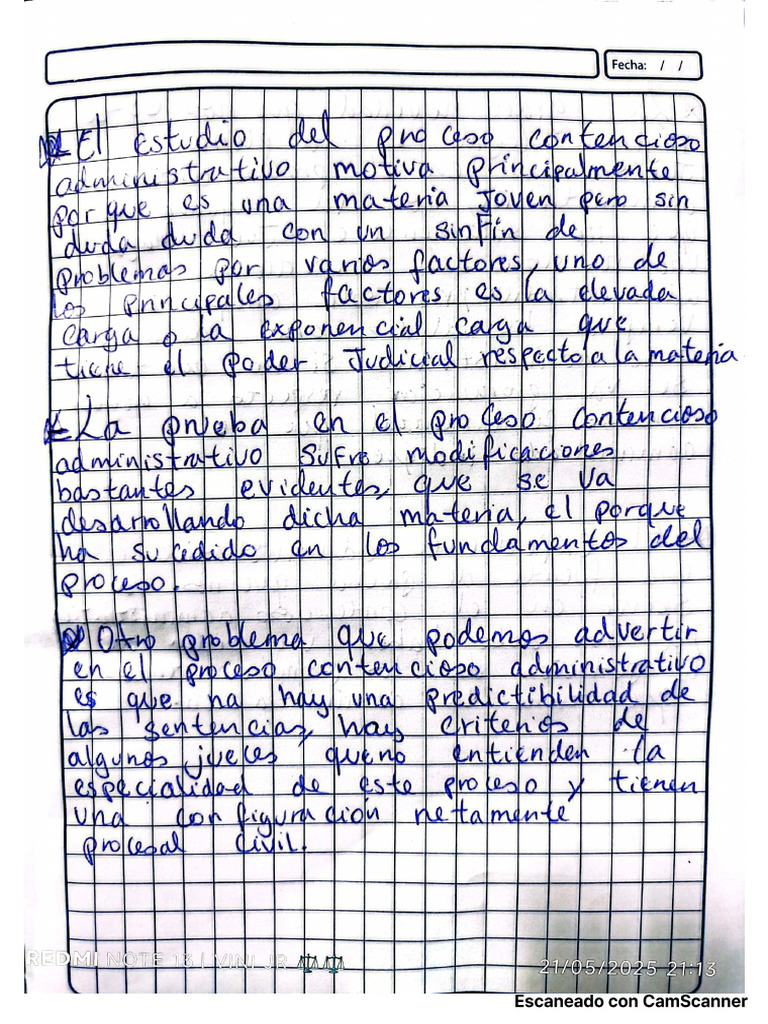 Fecha: / /
El estudio del proceso contencioso
administrativo motiva principalmente
porque es una materia joven pero sin
duda duda con un sinfín de
problemas por varios factores, uno de
los principales factores es la elevada
carga o la exponencial carga que
tiene el Poder Judicial respecto a la materia
La prueba en el proceso contencioso
administrativo sufre modificaciones
bastantes evidentes, que se va
desarrollando dicha materia, el porque
ha sucedido en los fundamentos del
proceso.
Otro problema que podemos advertir
en el proceso contencioso administrativo
es que na hay una predictibilidad de
las sentencias, hay criterios de
algunos jueces que no entienden la
especialidad de este proceso y tienen
una configuración netamente
procesal civil.
REDMI NOTE 13 | VINI JR
21/05/2025 21:13
Escaneado con CamScanner